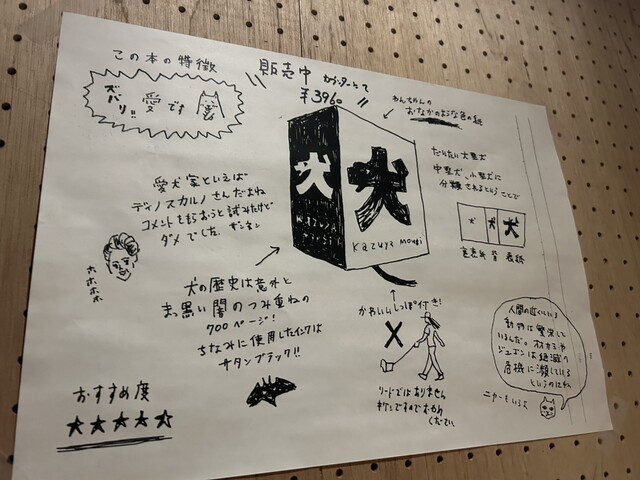 この本の特徴
ズバリ!!
愛です
販売中 カウンターにて
¥3960
わんちゃんの
おなかのような色の紙
犬
犬
KAZUYA
kazuya
だいたい大型犬
中型犬、小型犬に
分類されるということで
犬
犬
裏表紙 背 表紙
愛犬家といえば
ディノスカルノさんだよね
コメントをもらおうと試みたけど
ダメでした。ザンネン
ホホホホ
犬の歴史は意外と
まっ黒い闇のつみ重ねの
700ページ!
ちなみに使用したインクは
サタンブラック!!
かわいいしっぽ付き!
リードではありません
くだせい
人間の近くにいる
動物は繁栄して
いるんだ。オオカミや
ジュゴンは絶滅の
危機に瀕している
というのにね
ニャーもいるよ
おすすめ度
★★★★★